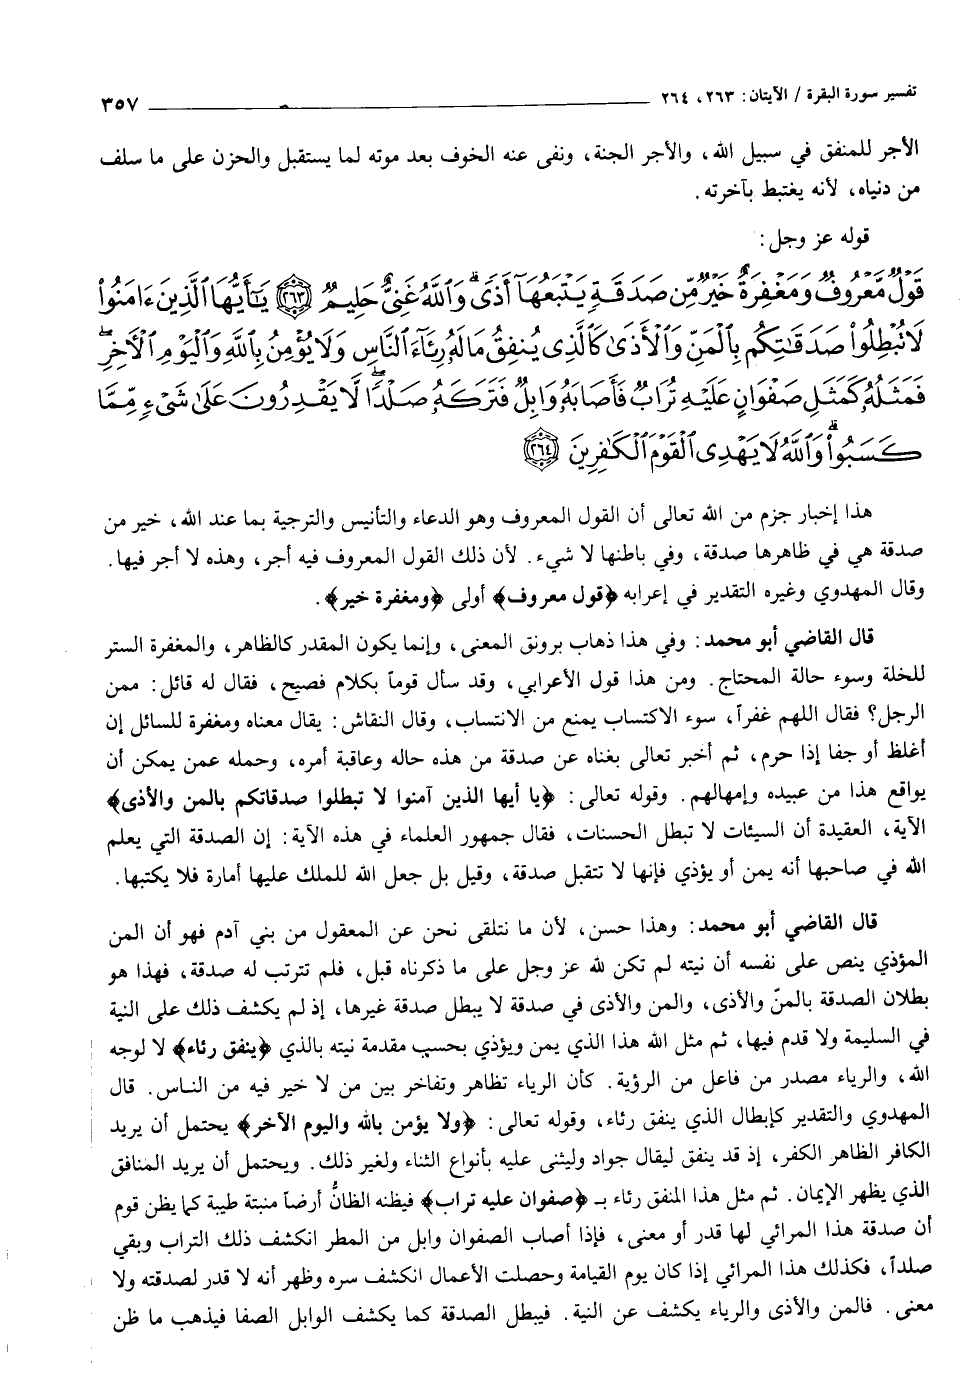 تفسير سورة البقرة / الآيتان: ٢٦٣، ٢٦٤ ٣٥٧
الأجر للمنفق في سبيل الله، والأجر الجنة، ونفى عنه الخوف بعد موته لما يستقبل والحزن على ما سلف
من دنياه، لأنه يغتبط بآخرته.
قوله عز وجل:
قَوْلٌ مَّعْرُوفٌ وَمَغْفِرَةٌ خَيْرٌ مِّن صَدَقَةٍ يَتْبَعُهَآ أَذًى ۗ وَٱللَّهُ غَنِىٌّ حَلِيمٌ ﴿٢٦٣﴾ يَـٰٓأَيُّهَا ٱلَّذِينَ ءَامَنُوا۟
لَا تُبْطِلُوا۟ صَدَقَـٰتِكُم بِٱلْمَنِّ وَٱلْأَذَىٰ كَٱلَّذِى يُنفِقُ مَالَهُۥ رِئَآءَ ٱلنَّاسِ وَلَا يُؤْمِنُ بِٱللَّهِ وَٱلْيَوْمِ ٱلْـَٔاخِرِ ۖ
فَمَثَلُهُۥ كَمَثَلِ صَفْوَانٍ عَلَيْهِ تُرَابٌ فَأَصَابَهُۥ وَابِلٌ فَتَرَكَهُۥ صَلْدًا ۖ لَّا يَقْدِرُونَ عَلَىٰ شَىْءٍ مِّمَّا
كَسَبُوا۟ ۗ وَٱللَّهُ لَا يَهْدِى ٱلْقَوْمَ ٱلْكَـٰفِرِينَ ﴿٢٦٤﴾
هذا إخبار جزم من الله تعالى أن القول المعروف وهو الدعاء والتأنيس والترجية بما عند الله، خير من
صدقة هي في ظاهرها صدقة، وفي باطنها لا شيء. لأن ذلك القول المعروف فيه أجر، وهذه لا أجر فيها.
وقال المهدوي وغيره التقدير في إعرابه ﴿قول معروف﴾ أولى ﴿ومغفرة خير﴾.
قال القاضي أبو محمد: وفي هذا ذهاب برونق المعنى، وإنما يكون المقدر كالظاهر، والمغفرة الستر
للخلة وسوء حالة المحتاج. ومن هذا قول الأعرابي، وقد سأل قوماً بكلام فصيح، فقال له قائل: ممن
الرجل؟ فقال اللهم غفراً، سوء الاكتساب يمنع من الانتساب، وقال النقاش: يقال معناه ومغفرة للسائل إن
أغلظ أو جفا إذا حرم، ثم أخبر تعالى بغناه عن صدقة من هذه حاله وعاقبة أمره، وحمله عمن يمكن أن
يواقع هذا من عبيده وإمهالهم. وقوله تعالى: ﴿يا أيها الذين آمنوا لا تبطلوا صدقاتكم بالمن والأذى﴾
الآية، العقيدة أن السيئات لا تبطل الحسنات، فقال جمهور العلماء في هذه الآية: إن الصدقة التي يعلم
الله في صاحبها أنه يمن أو يؤذي فإنها لا تتقبل صدقة، وقيل بل جعل الله للملك عليها أمارة فلا يكتبها.
قال القاضي أبو محمد: وهذا حسن، لأن ما نتلقى نحن عن المعقول من بني آدم فهو أن المن
المؤذي ينص على نفسه أن نيته لم تكن لله عز وجل على ما ذكرناه قبل، فلم تترتب له صدقة، فهذا هو
بطلان الصدقة بالمنّ والأذى، والمن والأذى في صدقة لا يبطل صدقة غيرها، إذ لم يكشف ذلك على النية
في السليمة ولا قدم فيها، ثم مثل الله هذا الذي يمن ويؤذي بحسب مقدمة نيته بالذي ﴿ينفق رئاء﴾ لا لوجه
الله، والرياء مصدر من فاعل من الرؤية. كأن الرياء تظاهر وتفاخر بين من لا خير فيه من الناس. قال
المهدوي والتقدير كإبطال الذي ينفق رئاء، وقوله تعالى: ﴿ولا يؤمن بالله واليوم الآخر﴾ يحتمل أن يريد
الكافر الظاهر الكفر، إذ قد ينفق ليقال جواد وليثنى عليه بأنواع الثناء ولغير ذلك. ويحتمل أن يريد المنافق
الذي يظهر الإيمان. ثم مثل هذا المنفق رئاء بـ ﴿صفوان عليه تراب﴾ فيظنه الظانُّ أرضاً منبتة طيبة كما يظن قوم
أن صدقة هذا المرائي لها قدر أو معنى، فإذا أصاب الصفوان وابل من المطر انكشف ذلك التراب وبقي
صلداً، فكذلك هذا المرائي إذا كان يوم القيامة وحصلت الأعمال انكشف سره وظهر أنه لا قدر لصدقته ولا
معنى. فالمن والأذى والرياء يكشف عن النية. فيبطل الصدقة كما يكشف الوابل الصفا فيذهب ما ظن